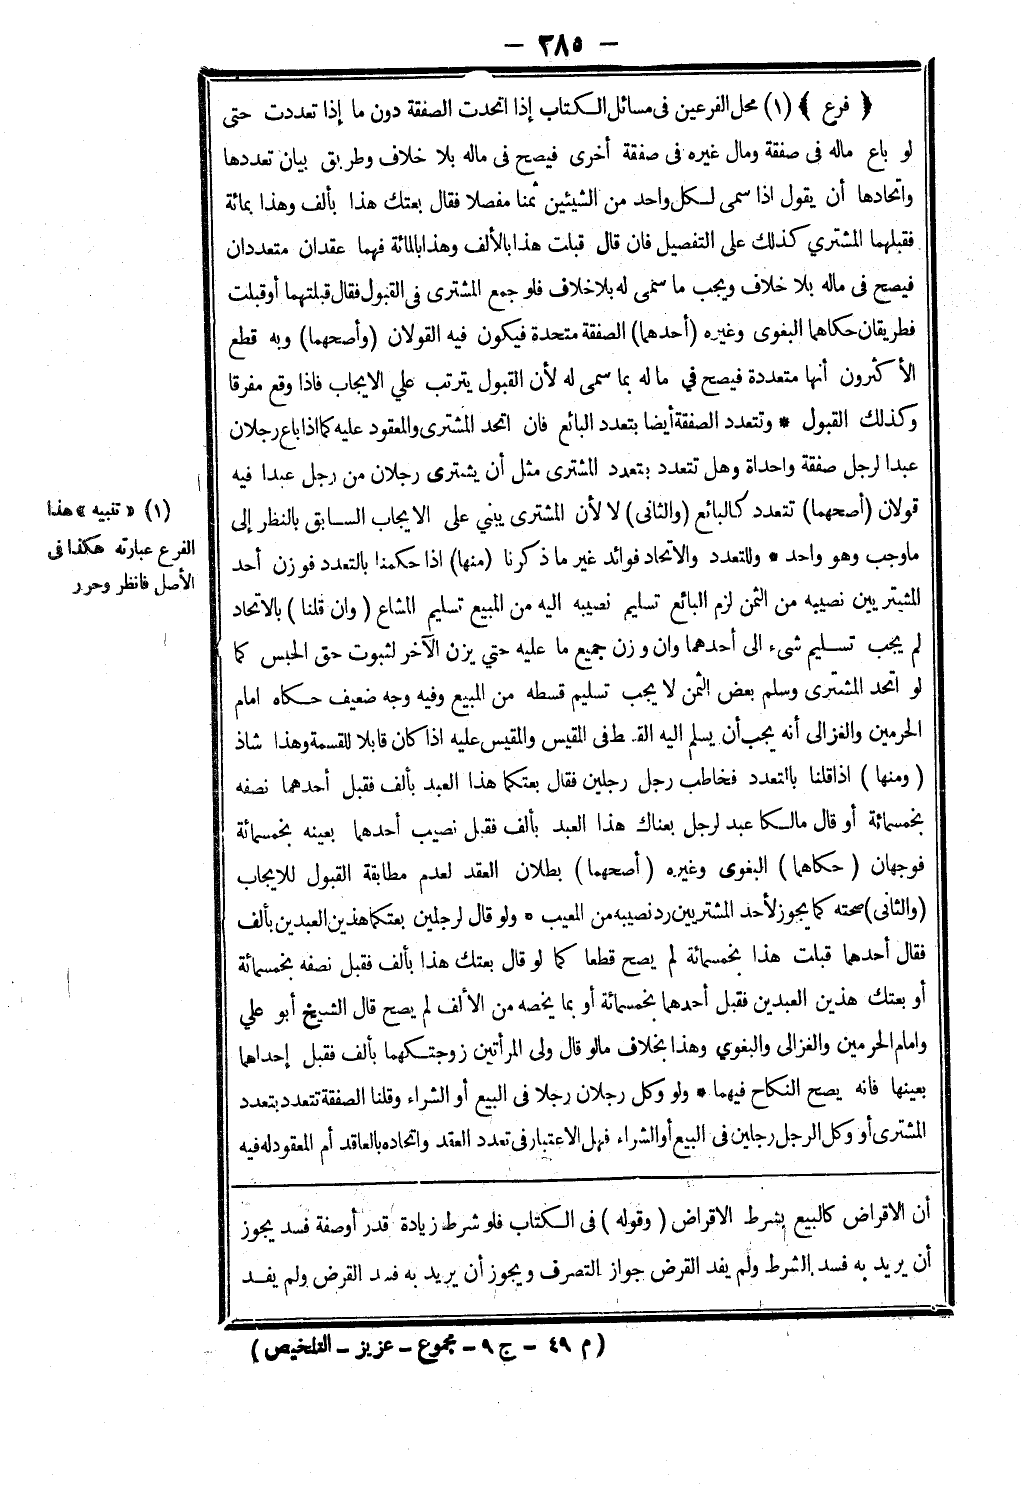 — ٣٨٥ —
﴿ فرع ﴾ (١) محل الفرعين فى مسائل الكتاب إذا اتحدت الصفقة دون ما إذا تعددت حتى
لو باع ماله فى صفقة ومال غيره فى صفقة أخرى فيصح فى ماله بلا خلاف وطريق بيان تعددها
واتحادها أن يقول اذا سمى لكل واحد من الشيئين ثمنا مفصلا فقال بعتك هذا بألف وهذا بمائة
فقبلهما المشتري كذلك على التفصيل فان قال قبلت هذا بالألف وهذا بالمائة فهما عقدان متعددان
فيصح فى ماله بلا خلاف ويجب ما سمى له بلا خلاف فلو جمع المشترى فى القبول فقال قبلتهما أو قبلت
فطريقان حكاهما البغوى وغيره (أحدها) الصفقة متحدة فيكون فيه القولان (وأصحهما) وبه قطع
الأكثرون أنها متعددة فيصح في ماله بما سمى له لأن القبول يترتب علي الايجاب فاذا وقع مفرقا
وكذلك القبول * وتتعدد الصفقة أيضا بتعدد البائع فان اتحد المشترى والمعقود عليه كما اذا باع رجلان
عبدا لرجل صفقة واحداة وهل تتعدد بتعدد المشترى مثل أن يشترى رجلان من رجل عبدا فيه
قولان (أصحهما) تتعدد كالبائع (والثانى) لا لأن المشترى يبني على الايجاب السابق بالنظر إلى
ماوجب وهو واحد * وللتعدد والاتحاد فوائد غير ما ذكرنا (منها) اذا حكمنا بالتعدد فوزن أحد
المشتريين نصيبه من الثمن لزم البائع تسليم نصيبه اليه من المبيع تسليم المشاع (وان قلنا) بالاتحاد
لم يجب تسليم شىء الى أحدهما وان وزن جميع ما عليه حتي يزن الآخر لثبوت حق الحبس كما
لو اتحد المشترى وسلم بعض الثمن لا يجب تسليم قسطه من المبيع وفيه وجه ضعيف حكاه امام
الحرمين والغزالى أنه يجب أن يسلم اليه القسط فى المقيس والمقيس عليه اذا كان قابلا للقسمة وهذا شاذ
(ومنها) اذا قلنا بالتعدد فخاطب رجل رجلين فقال بعتكما هذا العبد بألف فقبل أحدهما نصفه
بخمسمائة أو قال مالكا عبد لرجل بعناك هذا العبد بألف فقبل نصيب أحدهما بعينه بخمسمائة
فوجهان (حكاهما) البغوى وغيره (أصحهما) بطلان العقد لعدم مطابقة القبول للايجاب
(والثانى) صحته كما يجوز لأحد المشتريين رد نصيبه من المعيب * ولو قال لرجلين بعتكما هذين العبدين بألف
فقال أحدهما قبلت هذا بخمسمائة لم يصح قطعا كما لو قال بعتك هذا بألف فقبل نصفه بخمسمائة
أو بعتك هذين العبدين فقبل أحدهما بخمسمائة أو بما يخصه من الألف لم يصح قال الشيخ أبو علي
وامام الحرمين والغزالى والبغوي وهذا بخلاف مالو قال ولى المرأتين زوجتكهما بألف فقبل إحداهما
بعينها فانه يصح النكاح فيهما * ولو وكل رجلان رجلا فى البيع أو الشراء وقلنا الصفقة تتعدد بتعدد
المشترى أو وكل الرجل رجلين فى البيع أو الشراء فهل الاعتبار فى تعدد العقد واتحاده بالعاقد أم المعقود له فيه
(١) «تنبيه» هذا
الفرع عبارته هكذا فى
الأصل فانظر وحرر
أن الاقراض كالبيع بشرط الاقراض (وقوله) فى الكتاب فلو شرط زيادة قدر أوصفة فسد يجوز
أن يريد به فسد الشرط ولم يفد القرض جواز التصرف ويجوز أن يريد به فسد القرض ولم يفد
(م ٤٩ - ج ٩ - مجموع - عزيز - التلخيص)